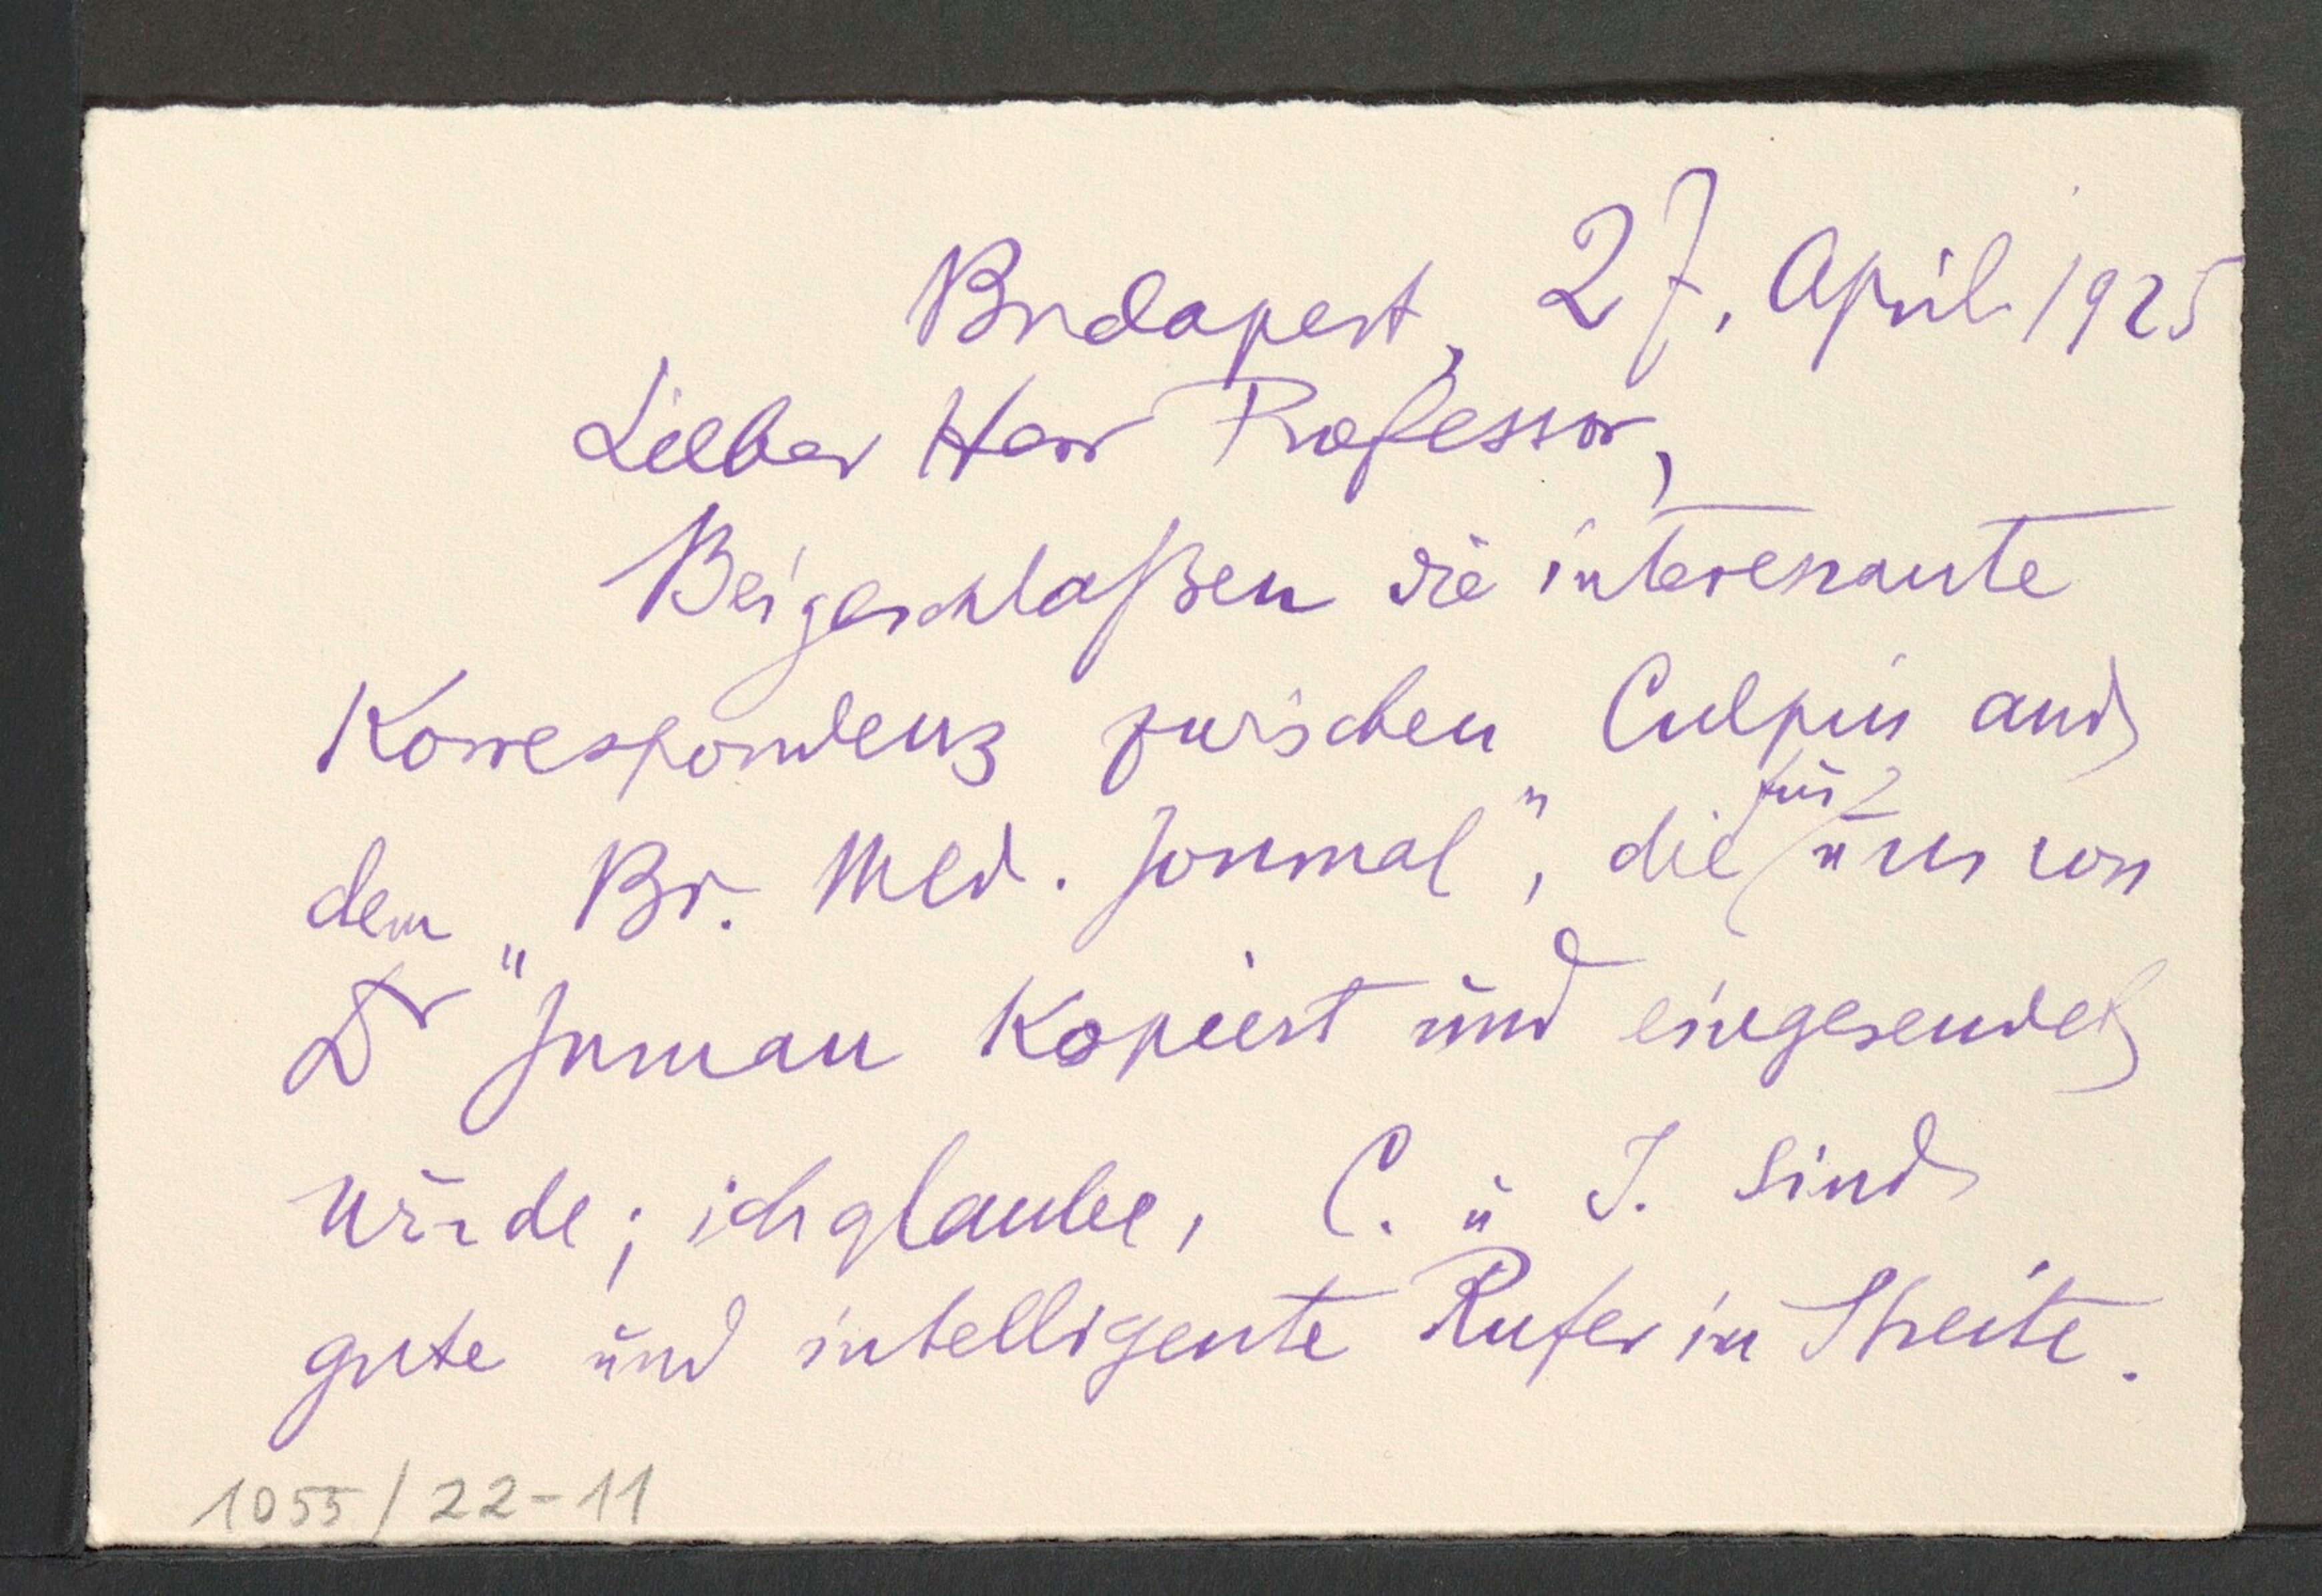 Budapest, 27. April 1925
Lieber Herr Professor,
Beigeschloßen die interessante
Korrespondenz zwischen Culpin and
dem „Br. Med. Journal", die für uns von
Dr Inman kopiert und eingesendet
wurde; ich glaube, C. u I. sind
gute und intelligente Rufer im Streite.
1055/22-11